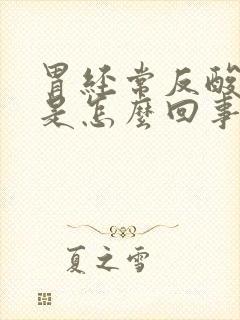 胃经常反酸
是怎麼回事
夏之雪